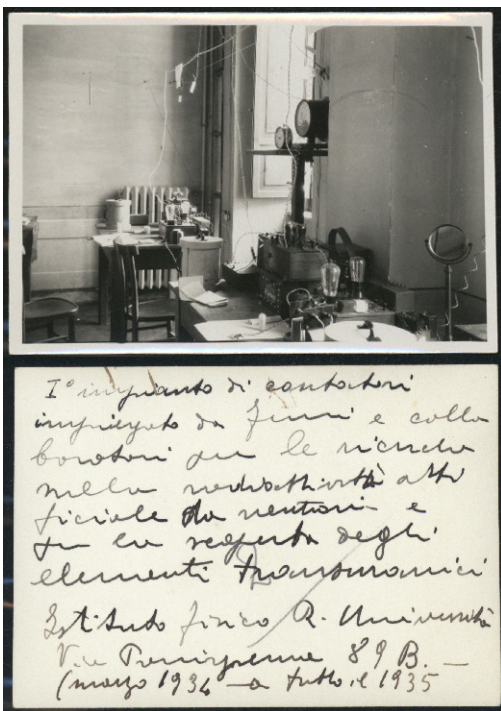 I° impianto di contatori
impiegato da Fermi e colla
boratori per le ricerche
nella radioattività arti
ficiale da neutroni e
per la scoperta degli
elementi transuranici
Istituto fisico R. Università
Via Panisperna 89 B. —
(marzo 1934 — a tutto il 1935